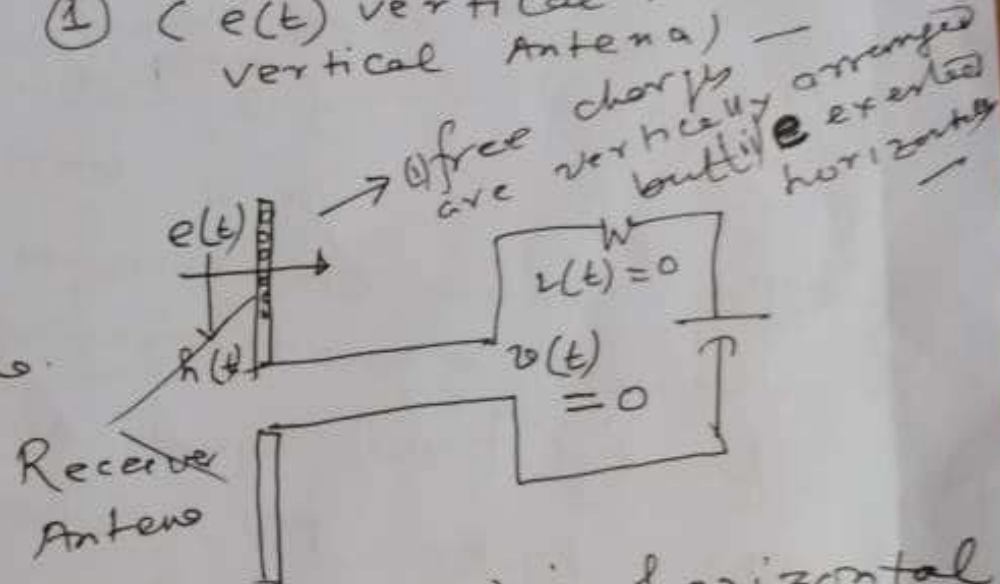 ① ( e(t) vertical
vertical Antena) —
→ ① free charges
are vertically arranged
but tive exerted
horizontally
e(t)
h(t)
i(t) = 0
v(t)
= 0
Receiver
Anteno
horizontal